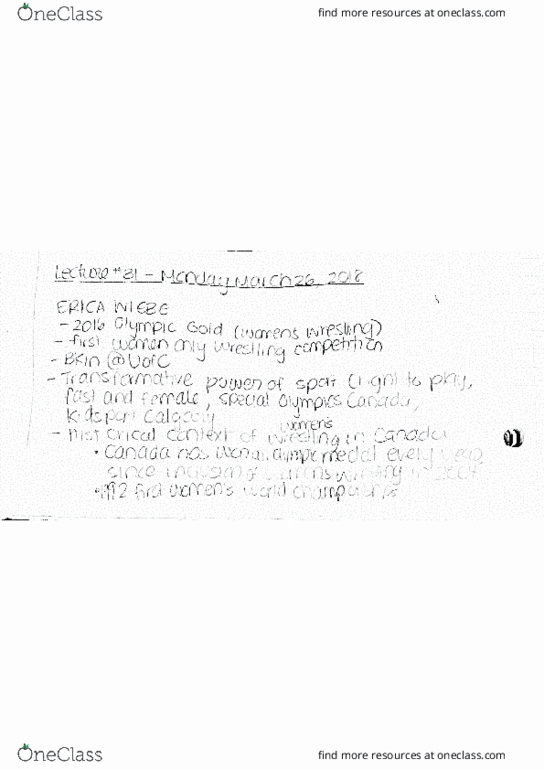 OneClass
find more resources at oneclass.com
Lecture #31 - Monday March 26, 2018
ERICA WIEBE
- 2016 Olympic Gold (womens wrestling)
- first women only wrestling competition
- BKin @ UofC
- Transformative power of sport (right to play,
fast and female, special Olympics Canada,
Kidsport Calgary
womens
- historical context of wrestling in Canada
• Canada has won an olympic medal every year
since inclusion of womens wrestling in
• 1992 first women's world championships
OneClass
find more resources at oneclass.com